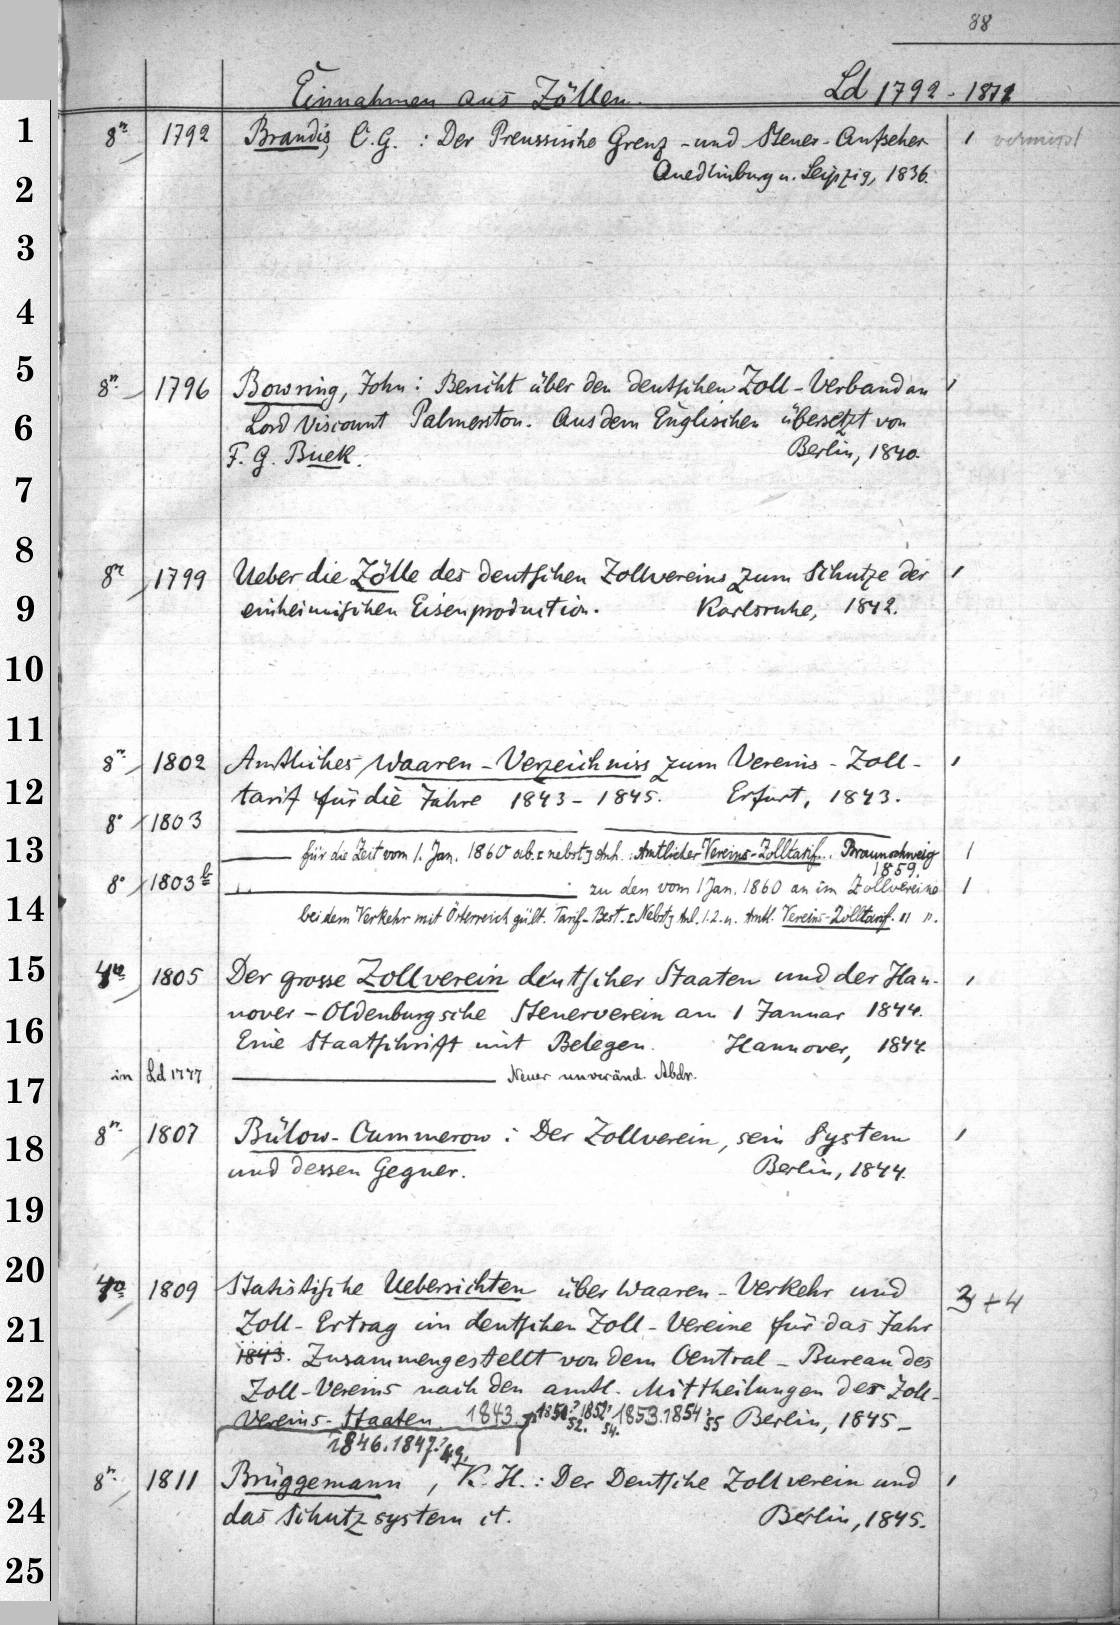 88
Einnahmen aus Zöllen. Ld 1792 - 1872
1 8° 1792 Brandis, C. G. : Der Preussische Grenz - und Steuer - Aufseher 1 vermisst
2 Quedlinburg u. Leipzig, 1836.
3
4
5 8° 1796 Bowring, John : Bericht über den deutschen Zoll - Verband an 1
6 Lord Viscount Palmerston. Aus dem Englischen übersetzt von
F. G. Buek. Berlin, 1840.
7
8 8° 1799 Ueber die Zölle des deutschen Zollvereins zum Schutze der 1
9 einheimischen Eisenproduction. Karlsruhe, 1842.
10
11
8° 1802 Amtliches Waaren - Verzeichniss zum Vereins - Zoll - 1
12 tarif für die Jahre 1843 - 1845. Erfurt, 1843.
8° 1803
13 für die Zeit vom 1. Jan. 1860 ab. [nebst] Anh. : Amtlicher Vereins-Zolltarif. Braunschweig 1
1859.
8° 1803 b zu den vom 1 Jan. 1860 an im Zollvereine 1
14 bei dem Verkehr mit Österreich gült. Tarif-Best. [Nebst] Anl. 1.2. u. Amtl. Vereins-Zolltarif. " ".
15 4° 1805 Der grosse Zollverein deutscher Staaten und der Han- 1
nover - Oldenburgsche Steuerverein am 1 Januar 1844.
16 Eine Staatsschrift mit Belegen. Hannover, 1844.
17 in Ld 1777 Neuer unveränd. Abdr.
18 8° 1807 Bülow - Cummerow : Der Zollverein, sein System 1
und dessen Gegner. Berlin, 1844.
19
20 4° 1809 Statistische Uebersichten über Waaren - Verkehr und 3 + 4
21 Zoll - Ertrag im deutschen Zoll - Vereine für das Jahr
1843. Zusammengestellt von dem Central - Bureau des
22 Zoll - Vereins nach den amtl. Mittheilungen der Zoll-
Vereins - Staaten. 1843 1850. 52. 1852. 54. 1853. 1854. 55 Berlin, 1845 -
23 1846. 1847. 49.
8° 1811 Brüggemann, K. H. : Der Deutsche Zollverein und 1
24 das Schutzsystem et. Berlin, 1845.
25